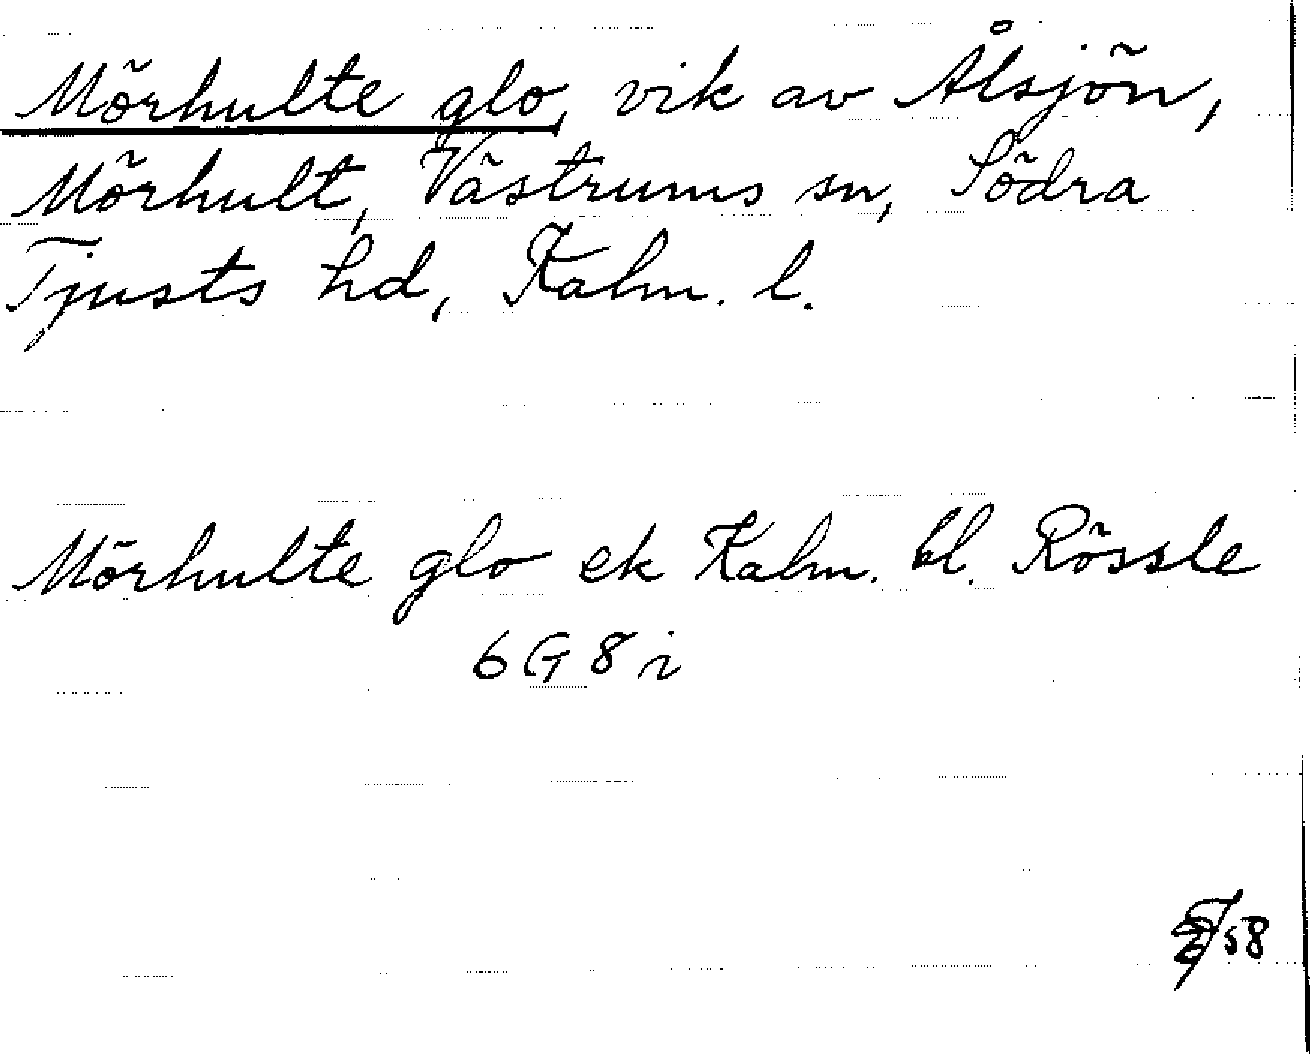 Mörhulte glo, vik av Ålsjön,
Mörhult, Västrums sn, Södra
Tjusts hd, Kalm. l.
Mörhulte glo ek Kalm. bl. Rössle
6G8i
58